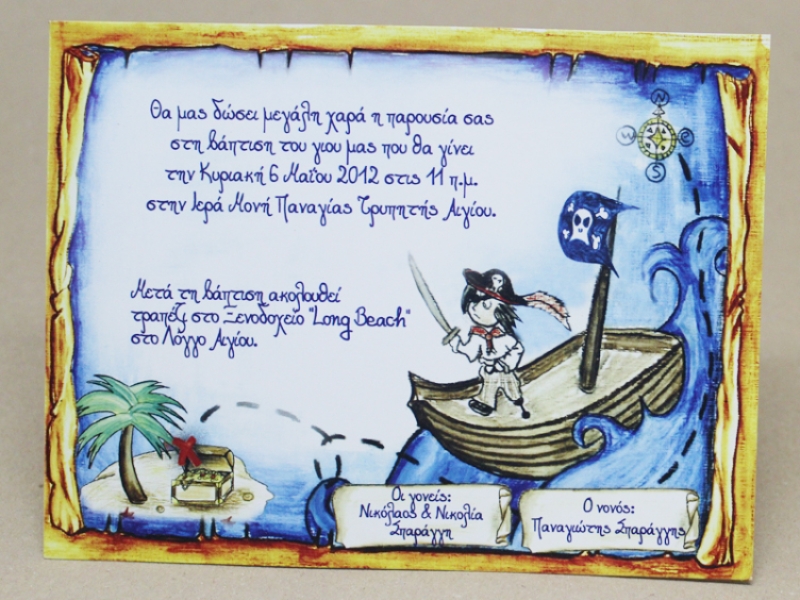 Θα μας δώσει μεγάλη χαρά η παρουσία σας
στη βάπτιση του γιου μας που θα γίνει
την Κυριακή 6 Μαΐου 2012 στις 11 π.μ.
στην Ιερά Μονή Παναγίας Τρυπητής Αιγίου.
Μετά τη βάπτιση ακολουθεί
τραπέζι στο Ξενοδοχείο "Long Beach"
στο Λόγγο Αιγίου.
N
W E
S
Οι γονείς:
Νικόλαος & Νικολία
Σπαράγγη
Ο νονός:
Παναγιώτης Σπαράγγης